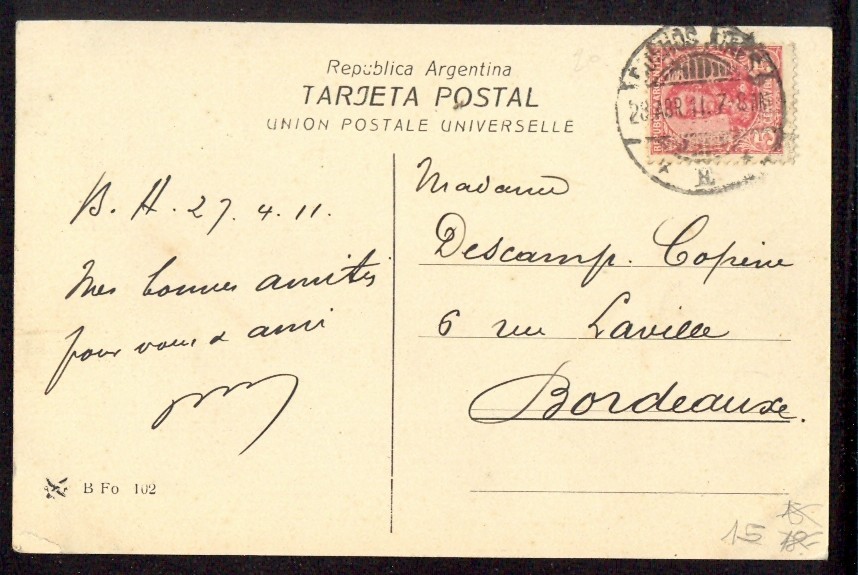 República Argentina
TARJETA POSTAL
UNION POSTALE UNIVERSELLE
BUENOS AIRES
28 ABR. 11. 7-8
B. A. 27. 4. 11.
Mes bonnes amitiés
pour vous & ami
Madame
Descamp. Copine
6 rue Laville
Bordeaux.
B Fo 102
15
18